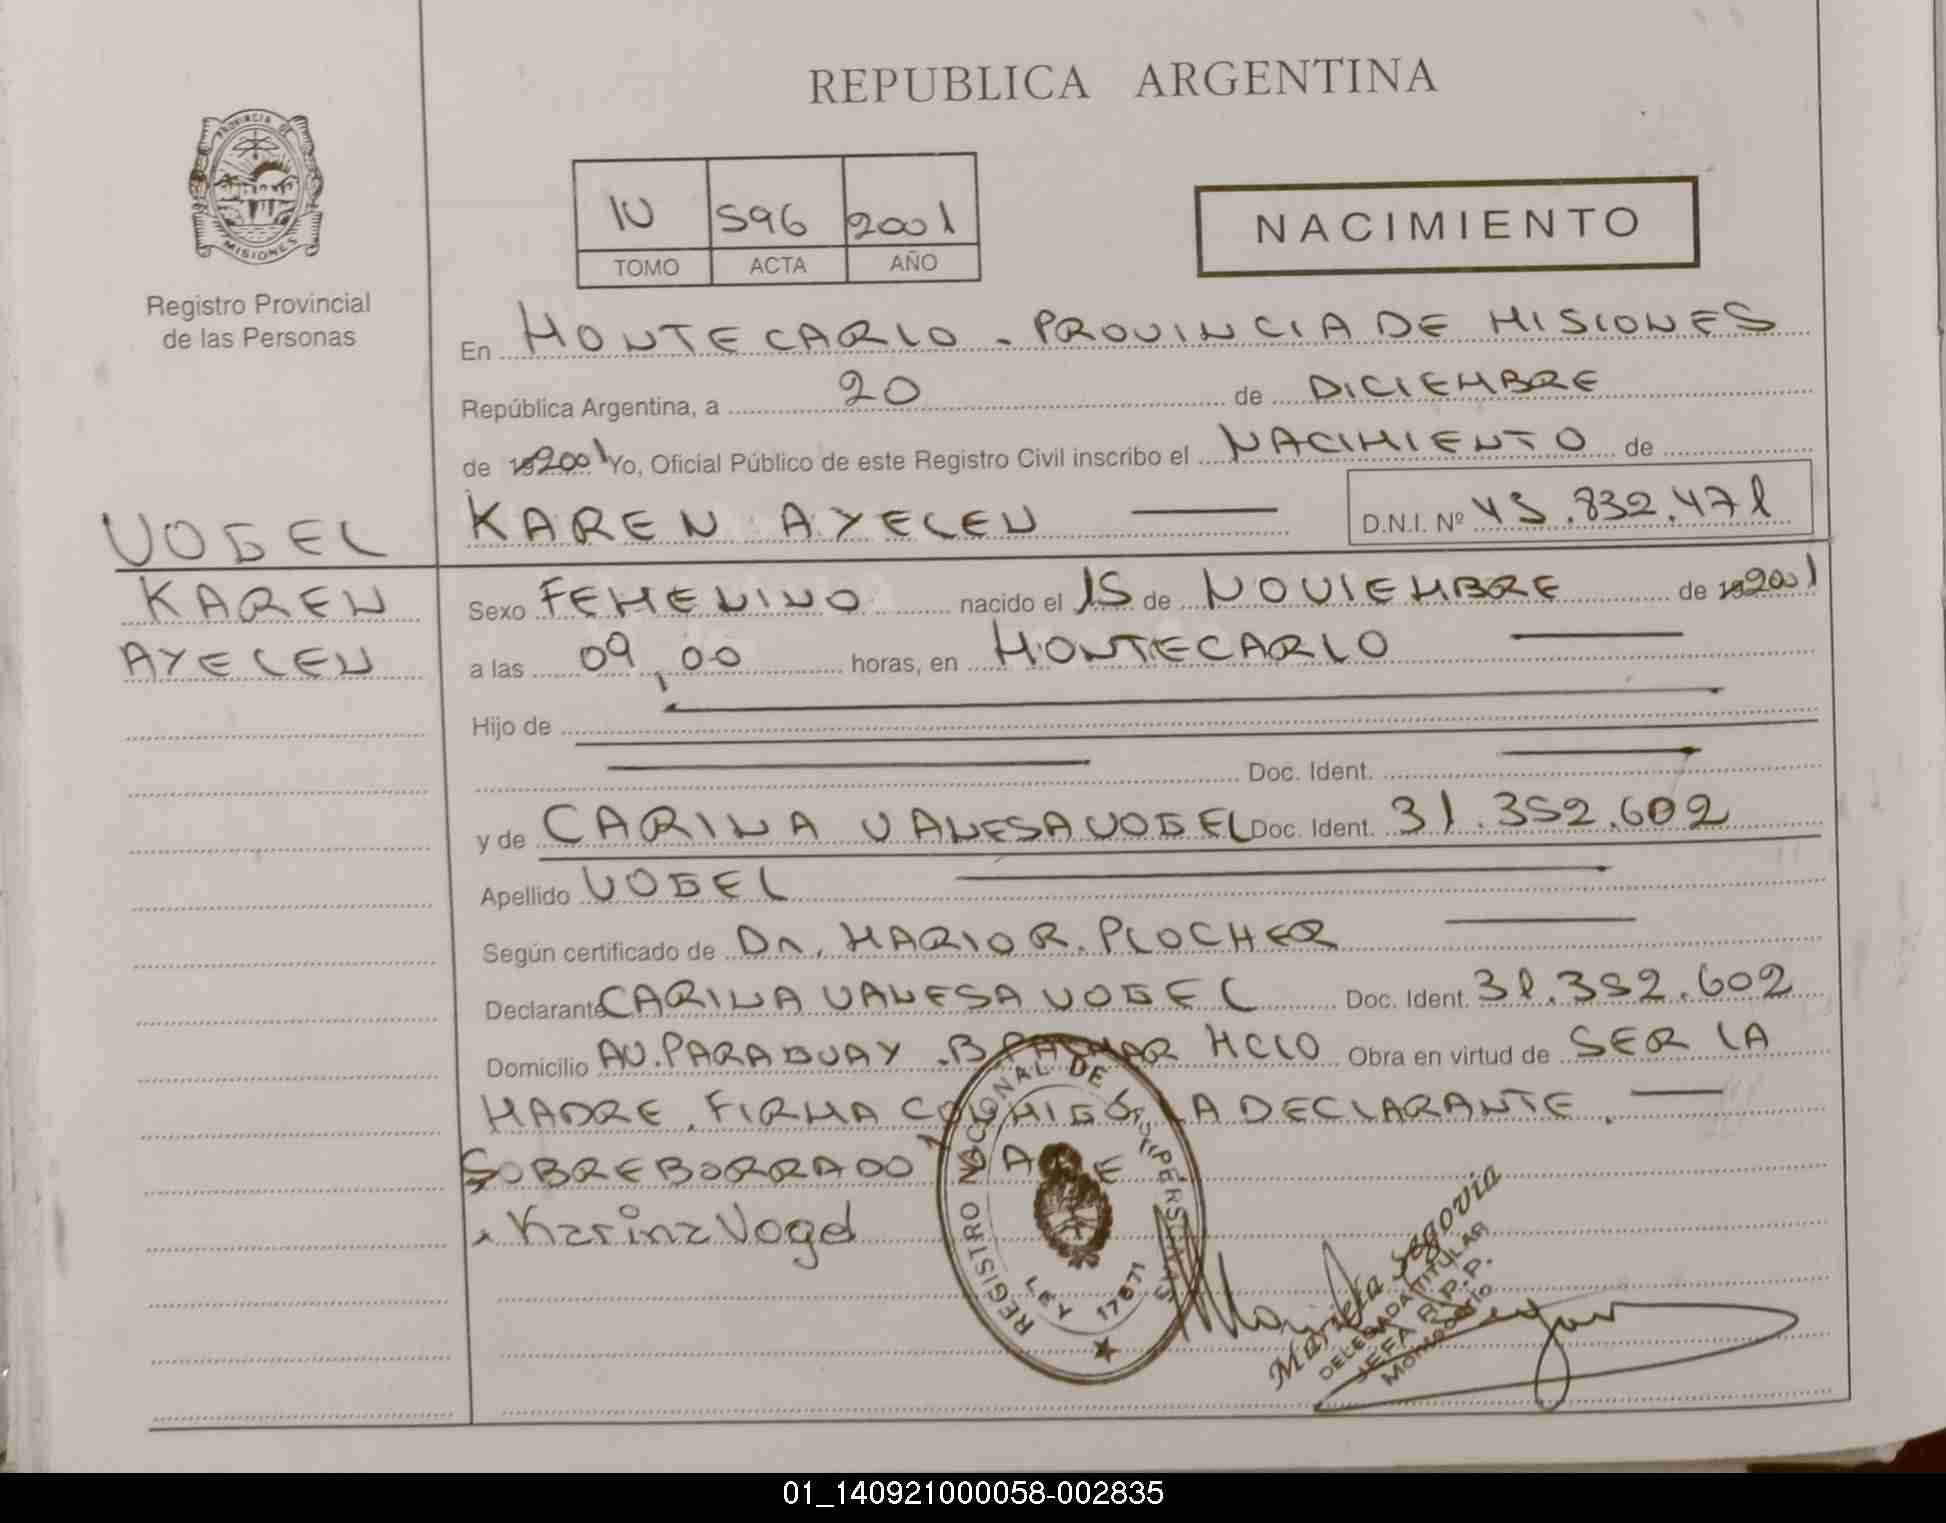 REPUBLICA ARGENTINA
PROVINCIA DE
MISIONES
Registro Provincial
de las Personas
IV 596 2001
TOMO ACTA AÑO
NACIMIENTO
En MONTECARLO - PROVINCIA DE MISIONES
República Argentina, a 20 de DICIEMBRE
de 192001 Yo, Oficial Público de este Registro Civil inscribo el NACIMIENTO de
KAREN AYELEN D.N.I. Nº 45.832.471
VOGEL
KAREN
AYELEN
Sexo FEMENINO nacido el 15 de NOVIEMBRE de 192001
a las 09,00 horas, en MONTECARLO
Hijo de
Doc. Ident.
y de CARINA VANESA VOGEL Doc. Ident. 31.352.602
Apellido VOGEL
Según certificado de Dr. MARIO R. PLOCHER
Declarante CARINA VANESA VOGEL Doc. Ident. 31.352.602
Domicilio AV. PARAGUAY . B PALMAR MCLO Obra en virtud de SER LA
MADRE. FIRMA CONMIGO LA DECLARANTE.
SOBREBORRADO
Karina Vogel
REGISTRO NACIONAL DE LAS PERSONAS
LEY 17671
Mariela Segovia
DELEGADA TITULAR
JEFA R.P.P.
Montecarlo
01_140921000058-002835